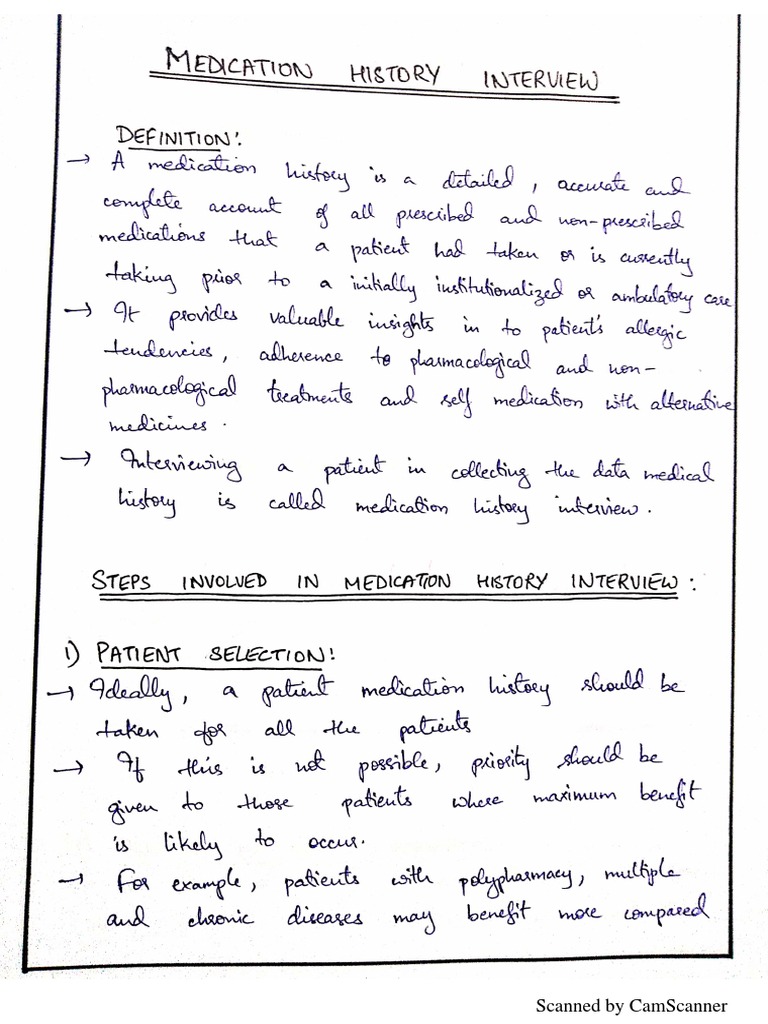 MEDICATION HISTORY INTERVIEW
DEFINITION:
→ A medication history is a detailed, accurate and
complete account of all prescribed and non-prescribed
medications that a patient had taken or is currently
taking prior to a initially institutionalized or ambulatory care
→ It provides valuable insights in to patient's allergic
tendencies, adherence to pharmacological and non-
pharmacological treatments and self medication with alternative
medicines.
→ Interviewing a patient in collecting the data medical
history is called medication history interview.
STEPS INVOLVED IN MEDICATION HISTORY INTERVIEW:
1) PATIENT SELECTION:
→ Ideally, a patient medication history should be
taken for all the patients
→ If this is not possible, priority should be
given to those patients where maximum benefit
is likely to occur.
→ For example, patients with polypharmacy, multiple
and chronic diseases may benefit more compared
Scanned by CamScanner